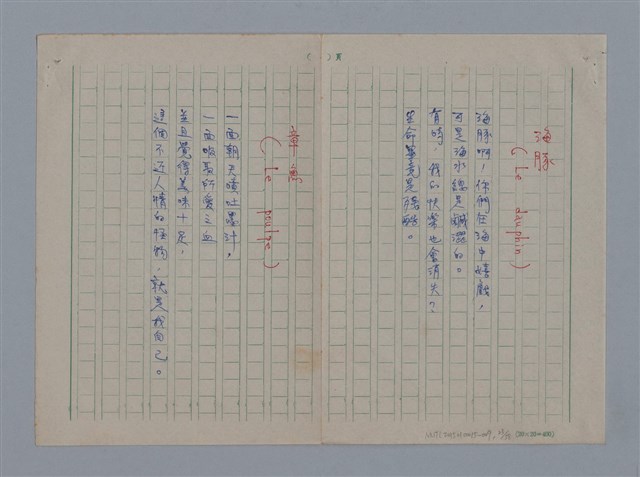 ( )頁
海豚
(Le dauphin)
海豚啊，你們在海中嬉戲，
可是海水總是鹹澀的。
有時，我的快樂也會消失？
生命畢竟是殘酷。
章魚
(Le poulpe)
一面朝天噴吐墨汁，
一面吸著所愛之血
並且覺得美味十足，
這個不近人情的怪物，就是我自己。